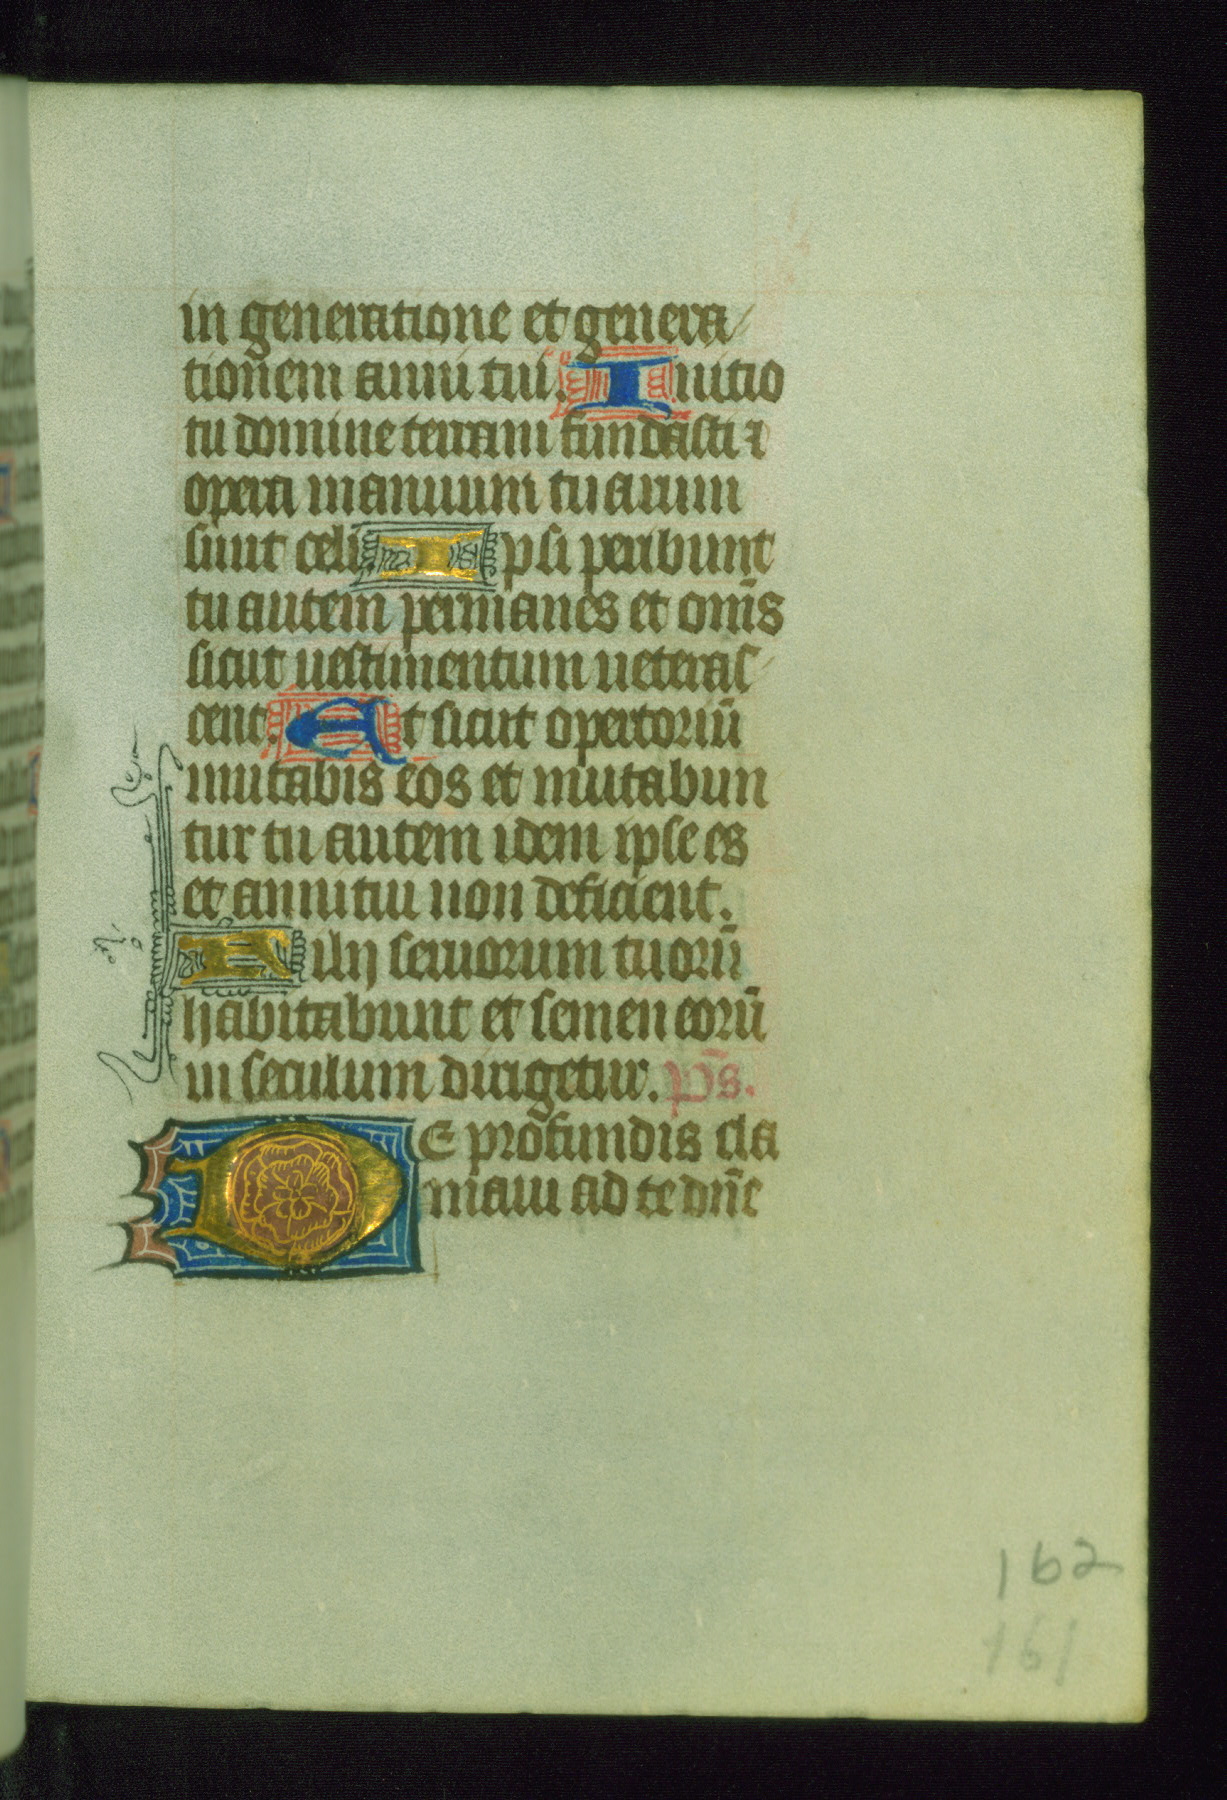 in generatione et genera
tionem anni tui. Initio
tu domine terram fundasti ⁊
opera manuum tuarum
sunt celi Ipsi peribunt
tu autem permanes et om̄s
sicut uestimentum ueteras
cent. Et sicut opertoriū
mutabis eos et mutabun
tur tu autem idem ipse es
et anni tui non deficient.
Filij seruorum tuorū
habitabunt et semen eorū
in seculum dirigetur. p̄s.
De profundis cla
maui ad te dn̄e
162
161